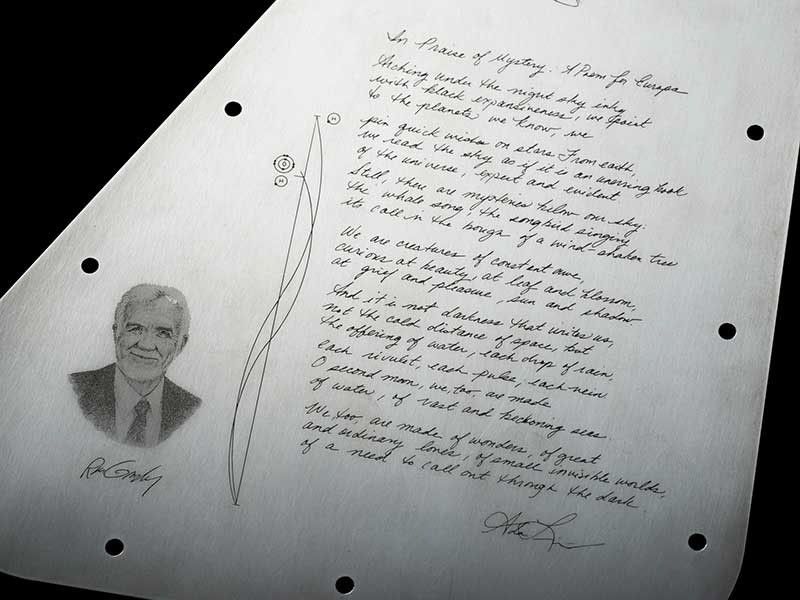 In Praise of Mystery: A Poem for Europa
Arching under the night sky inky
with black expansiveness, we point
to the planets we know, we
pin quick wishes on stars. From earth,
we read the sky as if it is an unerring book
of the universe, expert and evident.
Still, there are mysteries below our sky:
the whale song, the songbird singing
its call in the bough of a wind-shaken tree
We are creatures of constant awe,
curious at beauty, at leaf and blossom,
at grief and pleasure, sun and shadow
And it is not darkness that unites us,
not the cold distance of space, but
the offering of water, each drop of rain,
each rivulet, each pulse, each vein.
O second moon, we, too, are made
of water, of vast and beckoning seas.
We, too, are made of wonders, of great
and ordinary loves, of small invisible worlds,
of a need to call out through the dark.
H
O
H